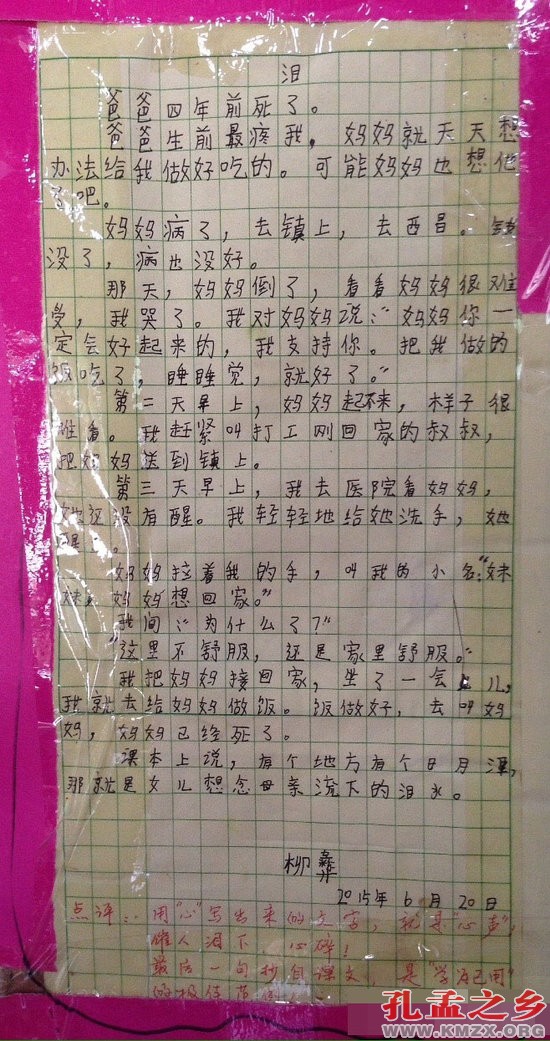 泪
爸爸四年前死了。
爸爸生前最疼我，妈妈就天天想
办法给我做好吃的。可能妈妈也想他
了吧。
妈妈病了，去镇上，去西昌。钱
没了，病也没好。
那天，妈妈倒了，看看妈妈很难
受，我哭了。我对妈妈说：“妈妈你一
定会好起来的，我支持你。把我做的
饭吃了，睡睡觉，就好了。”
第二天早上，妈妈起不来，样子很
难看。我赶紧叫打工刚回家的叔叔，
把妈妈送到镇上。
第三天早上，我去医院看妈妈，
她还没有醒。我轻轻地给她洗手，她
醒了。
妈妈拉着我的手，叫我的小名：“妹
妹，妈妈想回家。”
我问：“为什么了？”
“这里不舒服，还是家里舒服。”
我把妈妈接回家，坐了一会儿，
我就去给妈妈做饭。饭做好，去叫妈
妈，妈妈已经死了。
课本上说，有个地方有个日月潭，
那就是女儿想念母亲流下的泪水。
柳彝
2015年6月20日
点评：用“心”写出来的文字，就是“心声”，
催人泪下，心碎！
最后一句抄自课文，是“学为己用”
的极佳范例
孔孟之乡
WWW.KMZX.ORG